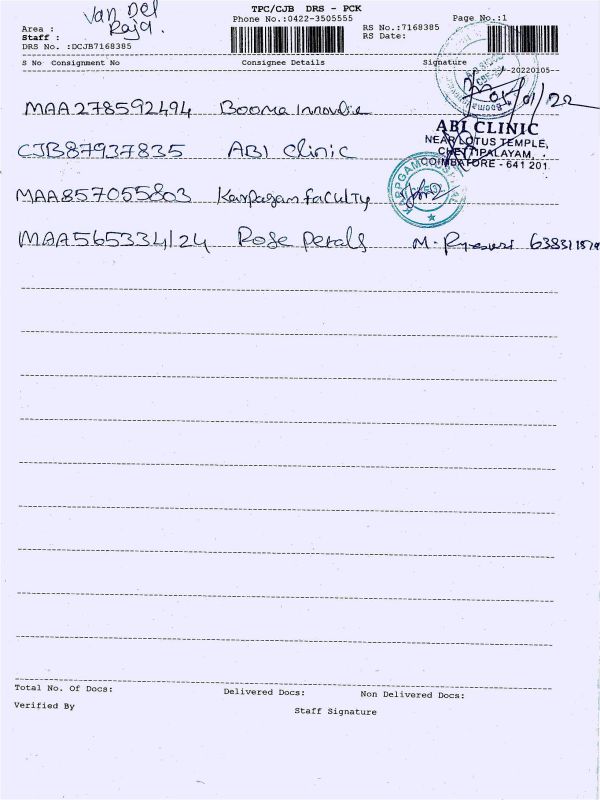 TPC/CJB DRS - PCK
Van Del
Phone No.:0422-3505555
Page No.:1
Area :
Raja.
RS No.:7168385
Staff :
RS Date:
DRS No. :DCJB7168385
S No Consignment No Consignee Details Signature
-20220105-
MAA278592494 Booma
ABI CLINIC
NEAR LOTUS TEMPLE,
CJB87937835 ABI Clinic
CHETTIPALAYAM,
COIMBATORE - 641 201
MAA857055803 Karpagam faculty
MAA565334124 Rose Petals M.
Total No. Of Docs: Delivered Docs: Non Delivered Docs:
Verified By Staff Signature